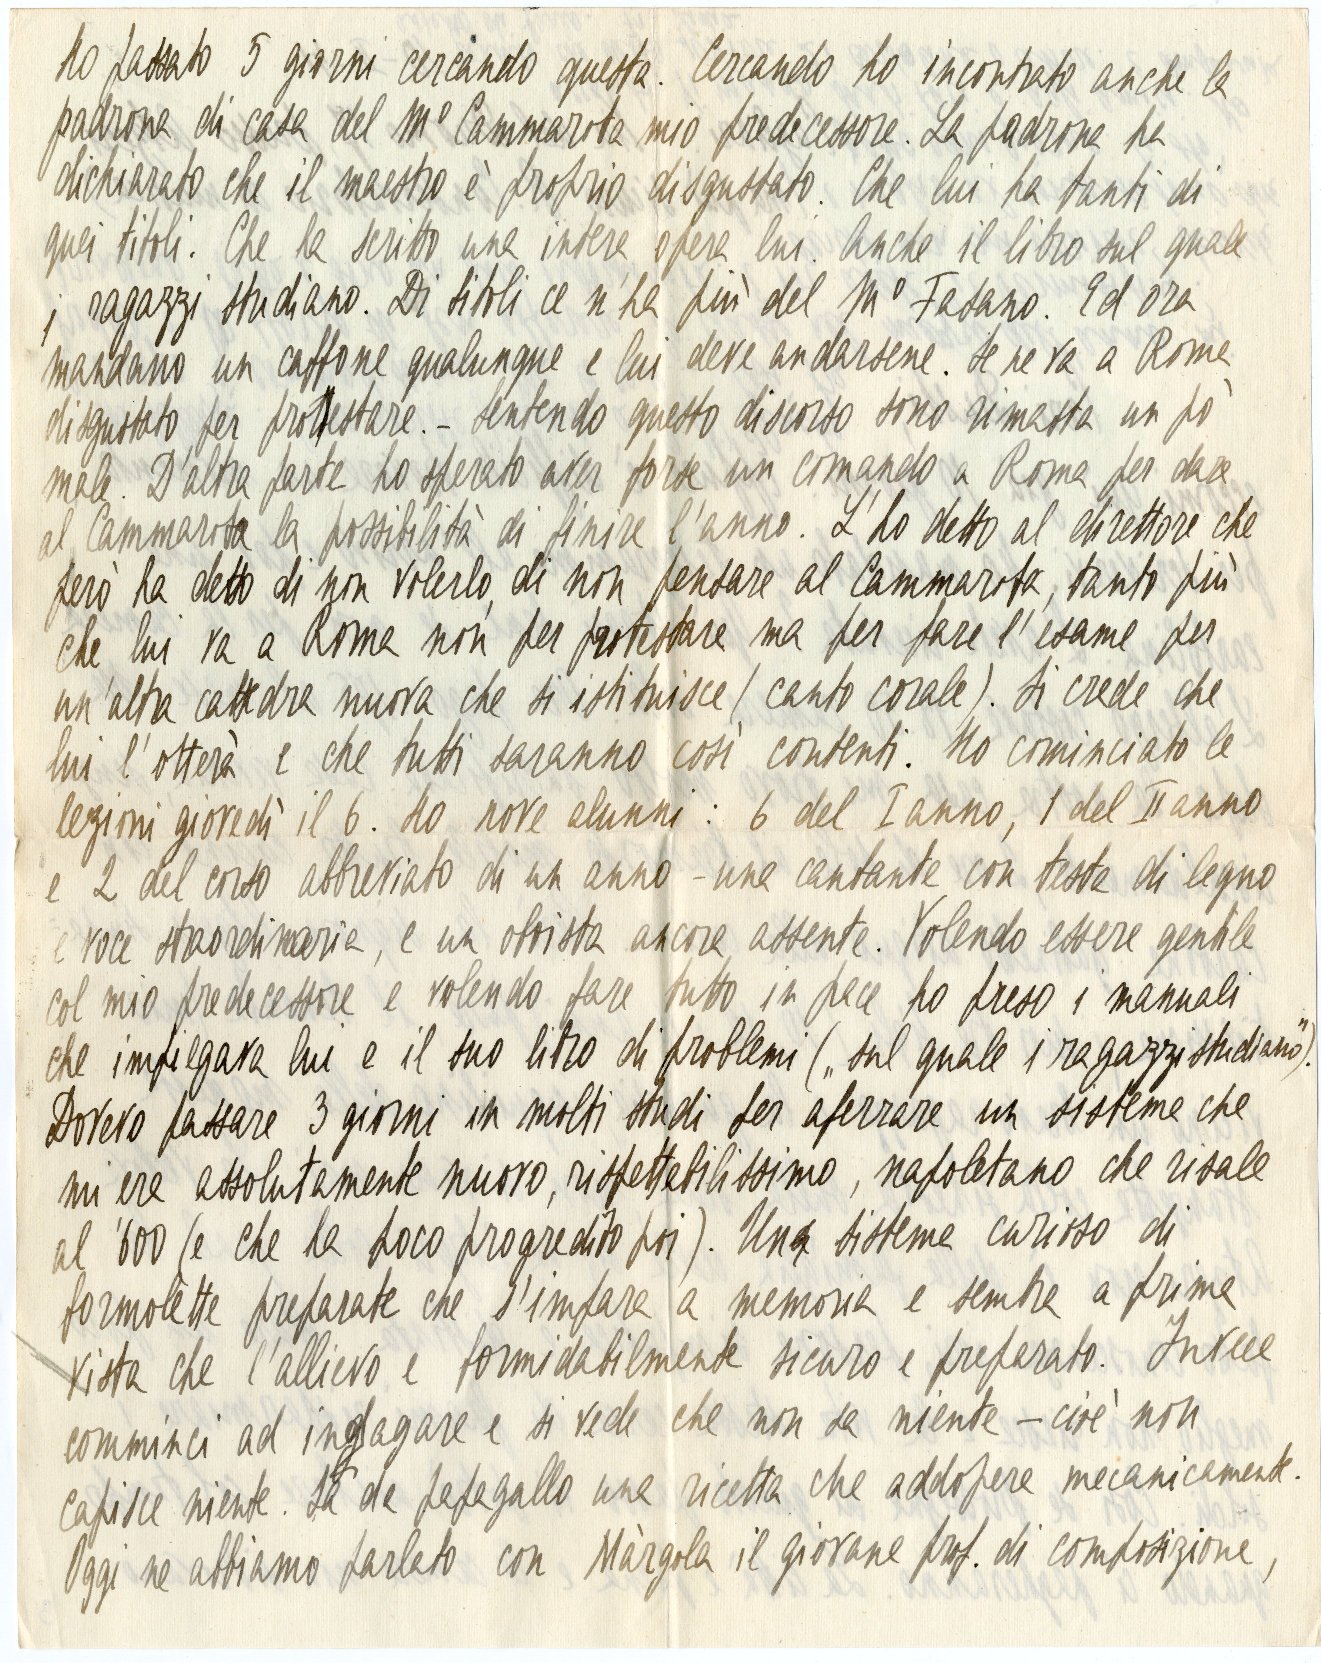 Ho passato 5 giorni cercando questa. Cercando ho incontrato anche la
padrona di casa del Mº Cammarota mio predecessore. La padrona ha
dichiarato che il maestro è proprio disgustato. Che lui ha tanti di
quei titoli. Che ha scritto una intera opera lui. Anche il libro sul quale
i ragazzi studiano. Di titoli ce n'ha più del Mº Fasano. Ed ora
mandano un caffone qualunque e lui deve andarsene. Se ne va a Roma
disgustato per protestare. – Sentendo questo discorso sono rimasta un pò
male. D'altra parte ho sperato aver forse un comando a Roma per dare
al Cammarota la possibilità di finire l'anno. L'ho detto al direttore che
però ha detto di non volerlo, di non pensare al Cammarota, tanto più
che lui va a Roma non per protestare ma per fare l'esame per
un'altra cattedra nuova che si istituisce (canto corale). Si crede che
lui l'otterà e che tutti saranno così contenti. Ho cominciato le
lezioni giovedì il 6. Ho nove alunni: 6 del I anno, 1 del II anno
e 2 del corso abbreviato di un anno – una cantante con testa di legno
e voce straordinaria, e un oboista ancora assente. Volendo essere gentile
col mio predecessore e volendo fare tutto in pace ho preso i manuali
che impiegava lui e il suo libro di problemi („sul quale i ragazzi studiano").
Dovevo passare 3 giorni in molti studi per aferrare un sistema che
mi era assolutamente nuovo, rispettabilissimo, napoletano che risale
al '600 (e che ha poco progredito poi). Una sistema curioso di
formolette preparate che s'impara a memoria e sembra a prima
vista che l'allievo e formidabilmente sicuro e preparato. Invece
comminci ad indagare e si vede che non sa niente – cioè non
capisce niente. Sà da papagallo una ricetta che addopera mecanicamente.
Oggi ne abbiamo parlato con Màrgola il giovane prof. di composizione,